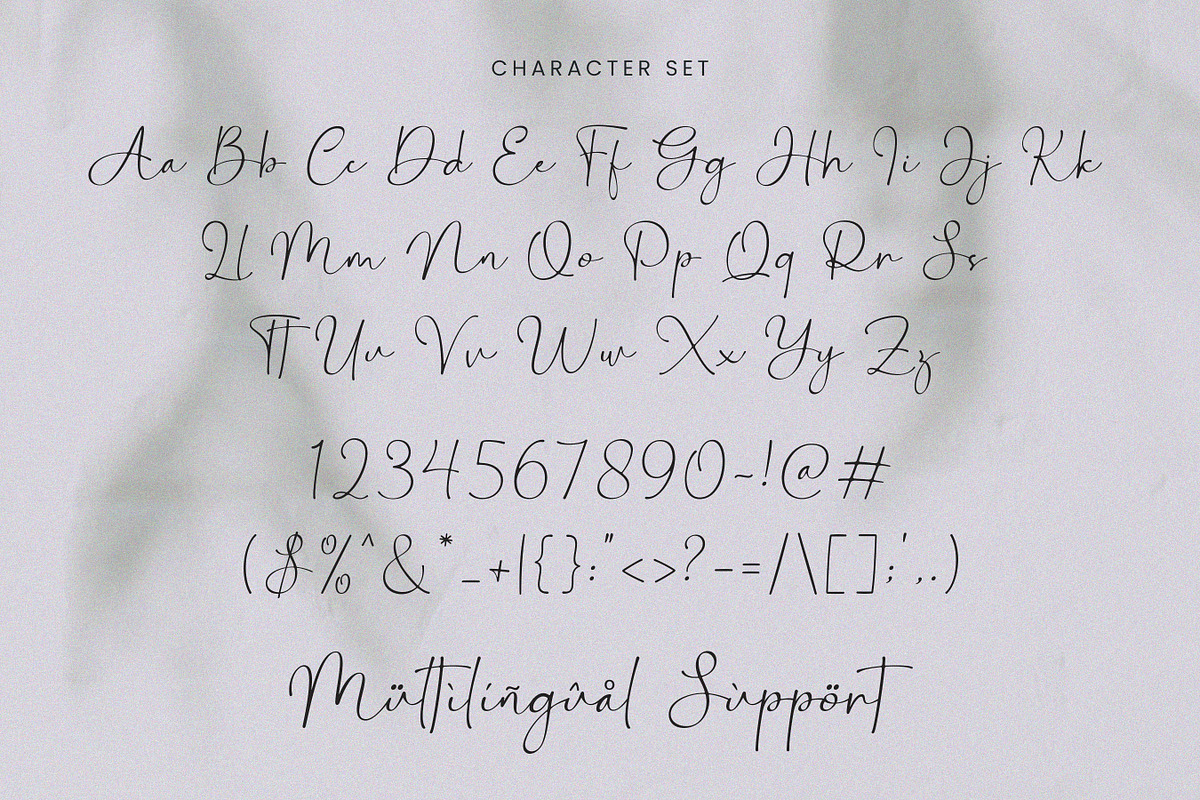 CHARACTER SET
Aa Bb Cc Dd Ee Ff Gg Hh Ii Jj Kk
Ll Mm Nn Oo Pp Qq Rr Ss
Tt Uu Vv Ww Xx Yy Zz
1234567890~!@#
($%^&*_+|{}:"<>?-=/\[];',.)
Müttìlíñgûål Sùppört